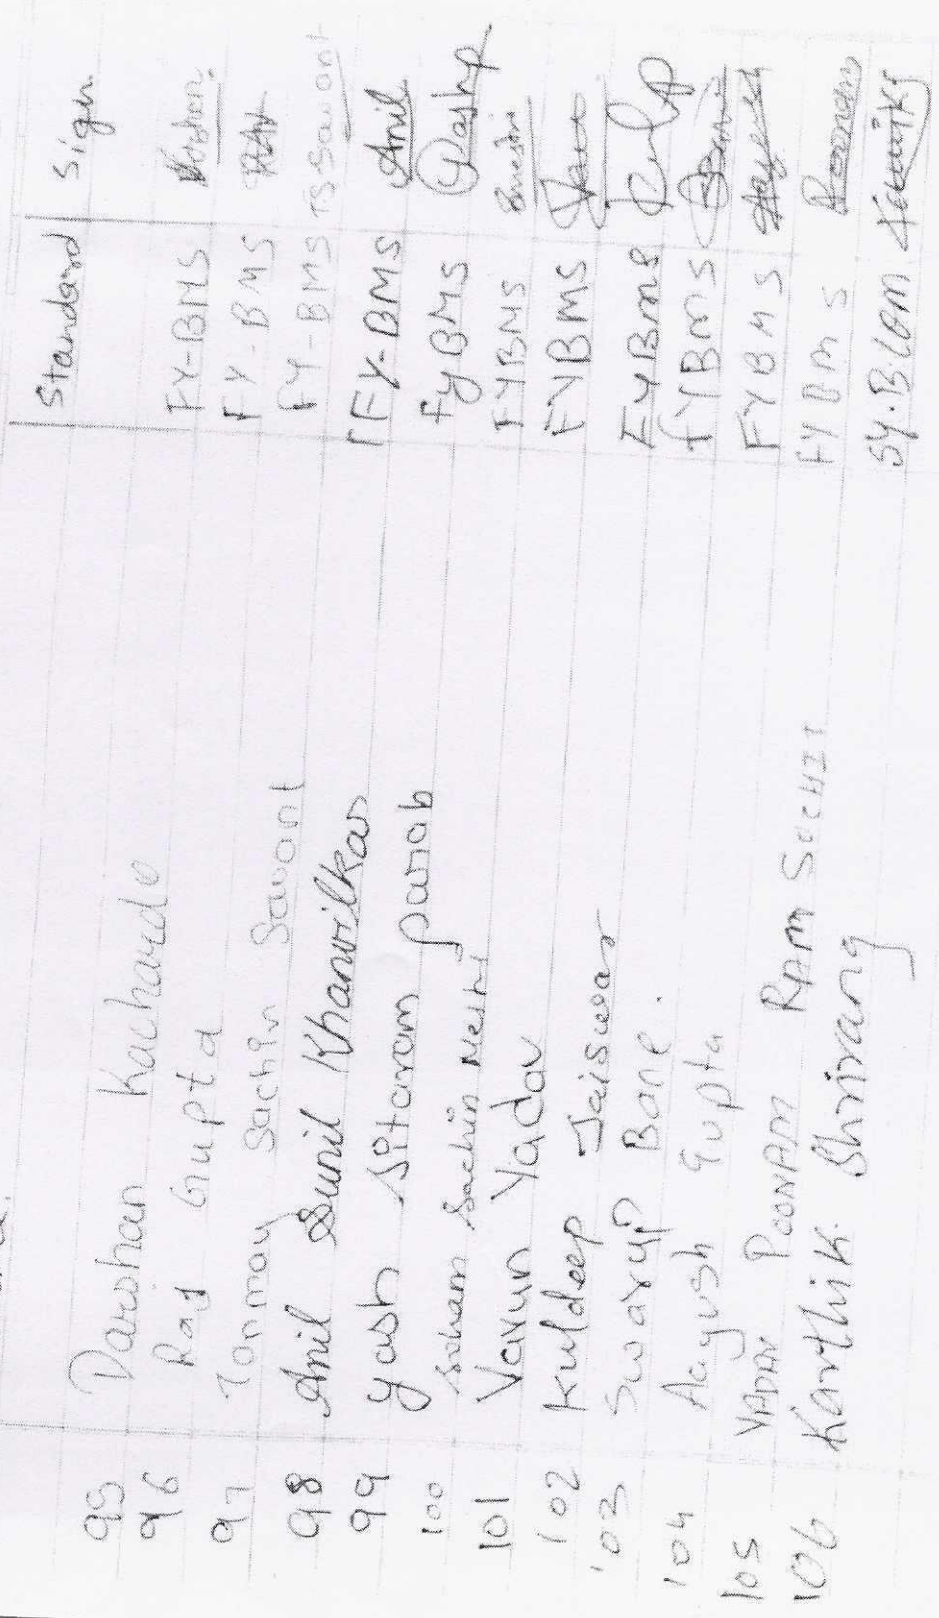 Standard Sign
95 Darshan Kacharde FY-BMS
96 Raj Gupta FY-BMS
97 Tanmay Sachin Sawant FY-BMS TSSawant
98 Anil Sunil Khanvilkar FY-BMS Anil
99 Yash Sitaram parab FyBMS Yashp
100 Soham Sachin FYBMS
101 Varun Yadav FYBMS
102 Kuldeep Jaiswar FYBMS
103 Swarup Bane. FYBMS
104 Aayush Gupta FYBMS Aayush
105 YADAV POONAM RAM SUCHIT FYBMS Poonam
106 Karthik Shrirang SY.BCom